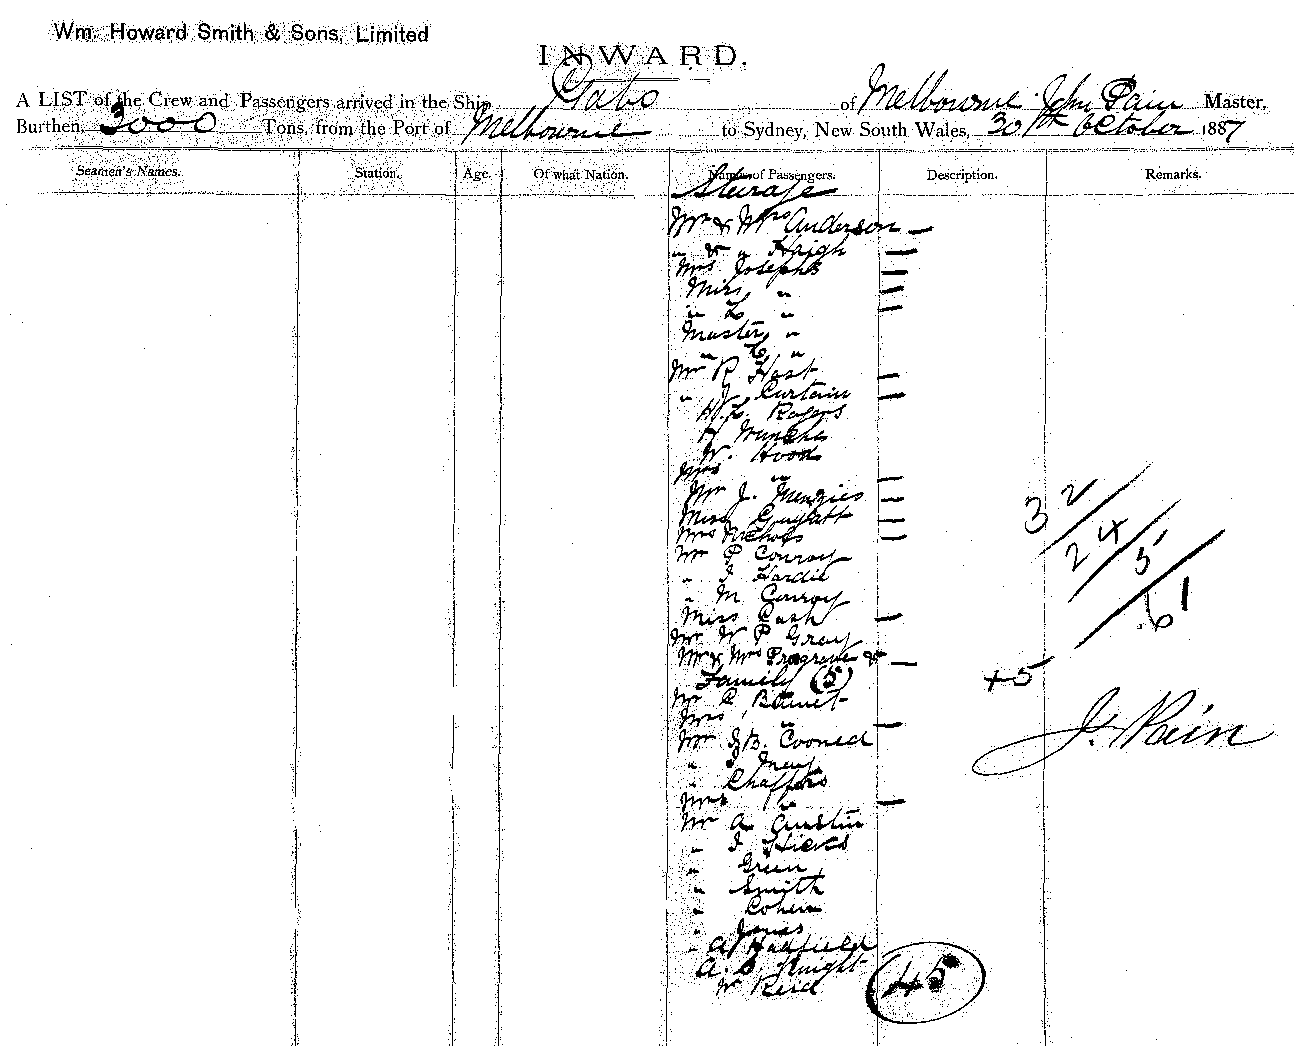 Wm. Howard Smith & Sons, Limited
INWARD.
A LIST of the Crew and Passengers arrived in the Ship Gabo of Melbourne John Pain Master,
Burthen 3000 Tons, from the Port of Melbourne to Sydney, New South Wales, 30th October 1887
Seamen's Names. Station. Age. Of what Nation. Names of Passengers. Description. Remarks.
Steerage
Mr & Mrs Anderson —
" & " Haigh —
Mrs Josephs —
Miss " —
" L " —
Master "
" "
Mr R Hast —
" J Curtain —
H. L. Rogers
H
W. Hood
Mrs " —
Mr J. Menzies —
Miss —
Mrs Nichols —
Mr P Conroy
" J Hardie
" M Conroy
Miss Cash —
Mr W P Gray
Mr & Mrs & —
Family (5)
Mr C
Mrs " —
Mr B. Cooned
"
" Chaffers
Mrs " —
Mr A Austin
" J Hicks
" Green
" Smith
" Cohen
" Jones
" A Hadfield
A. C. Knight
W Reid
32/
24/
5/
61
+5
J. Pain
45